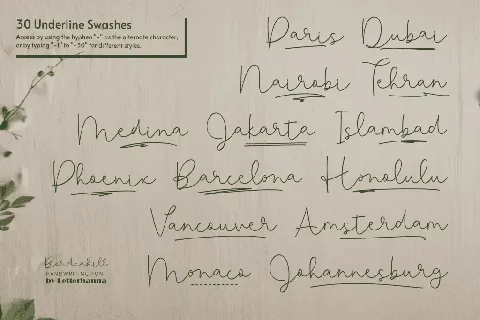 30 Underline Swashes
Access by using the hyphen "-" as the alternate character,
or by typing "-1" to "-30" for different styles.
Paris Dubai
Nairobi Tehran
Medina Jakarta Islambad
Phoenix Barcelona Honolulu
Vancouver Amsterdam
Monaco Johannesburg
HANDWRITING FONT
by Letterhanna